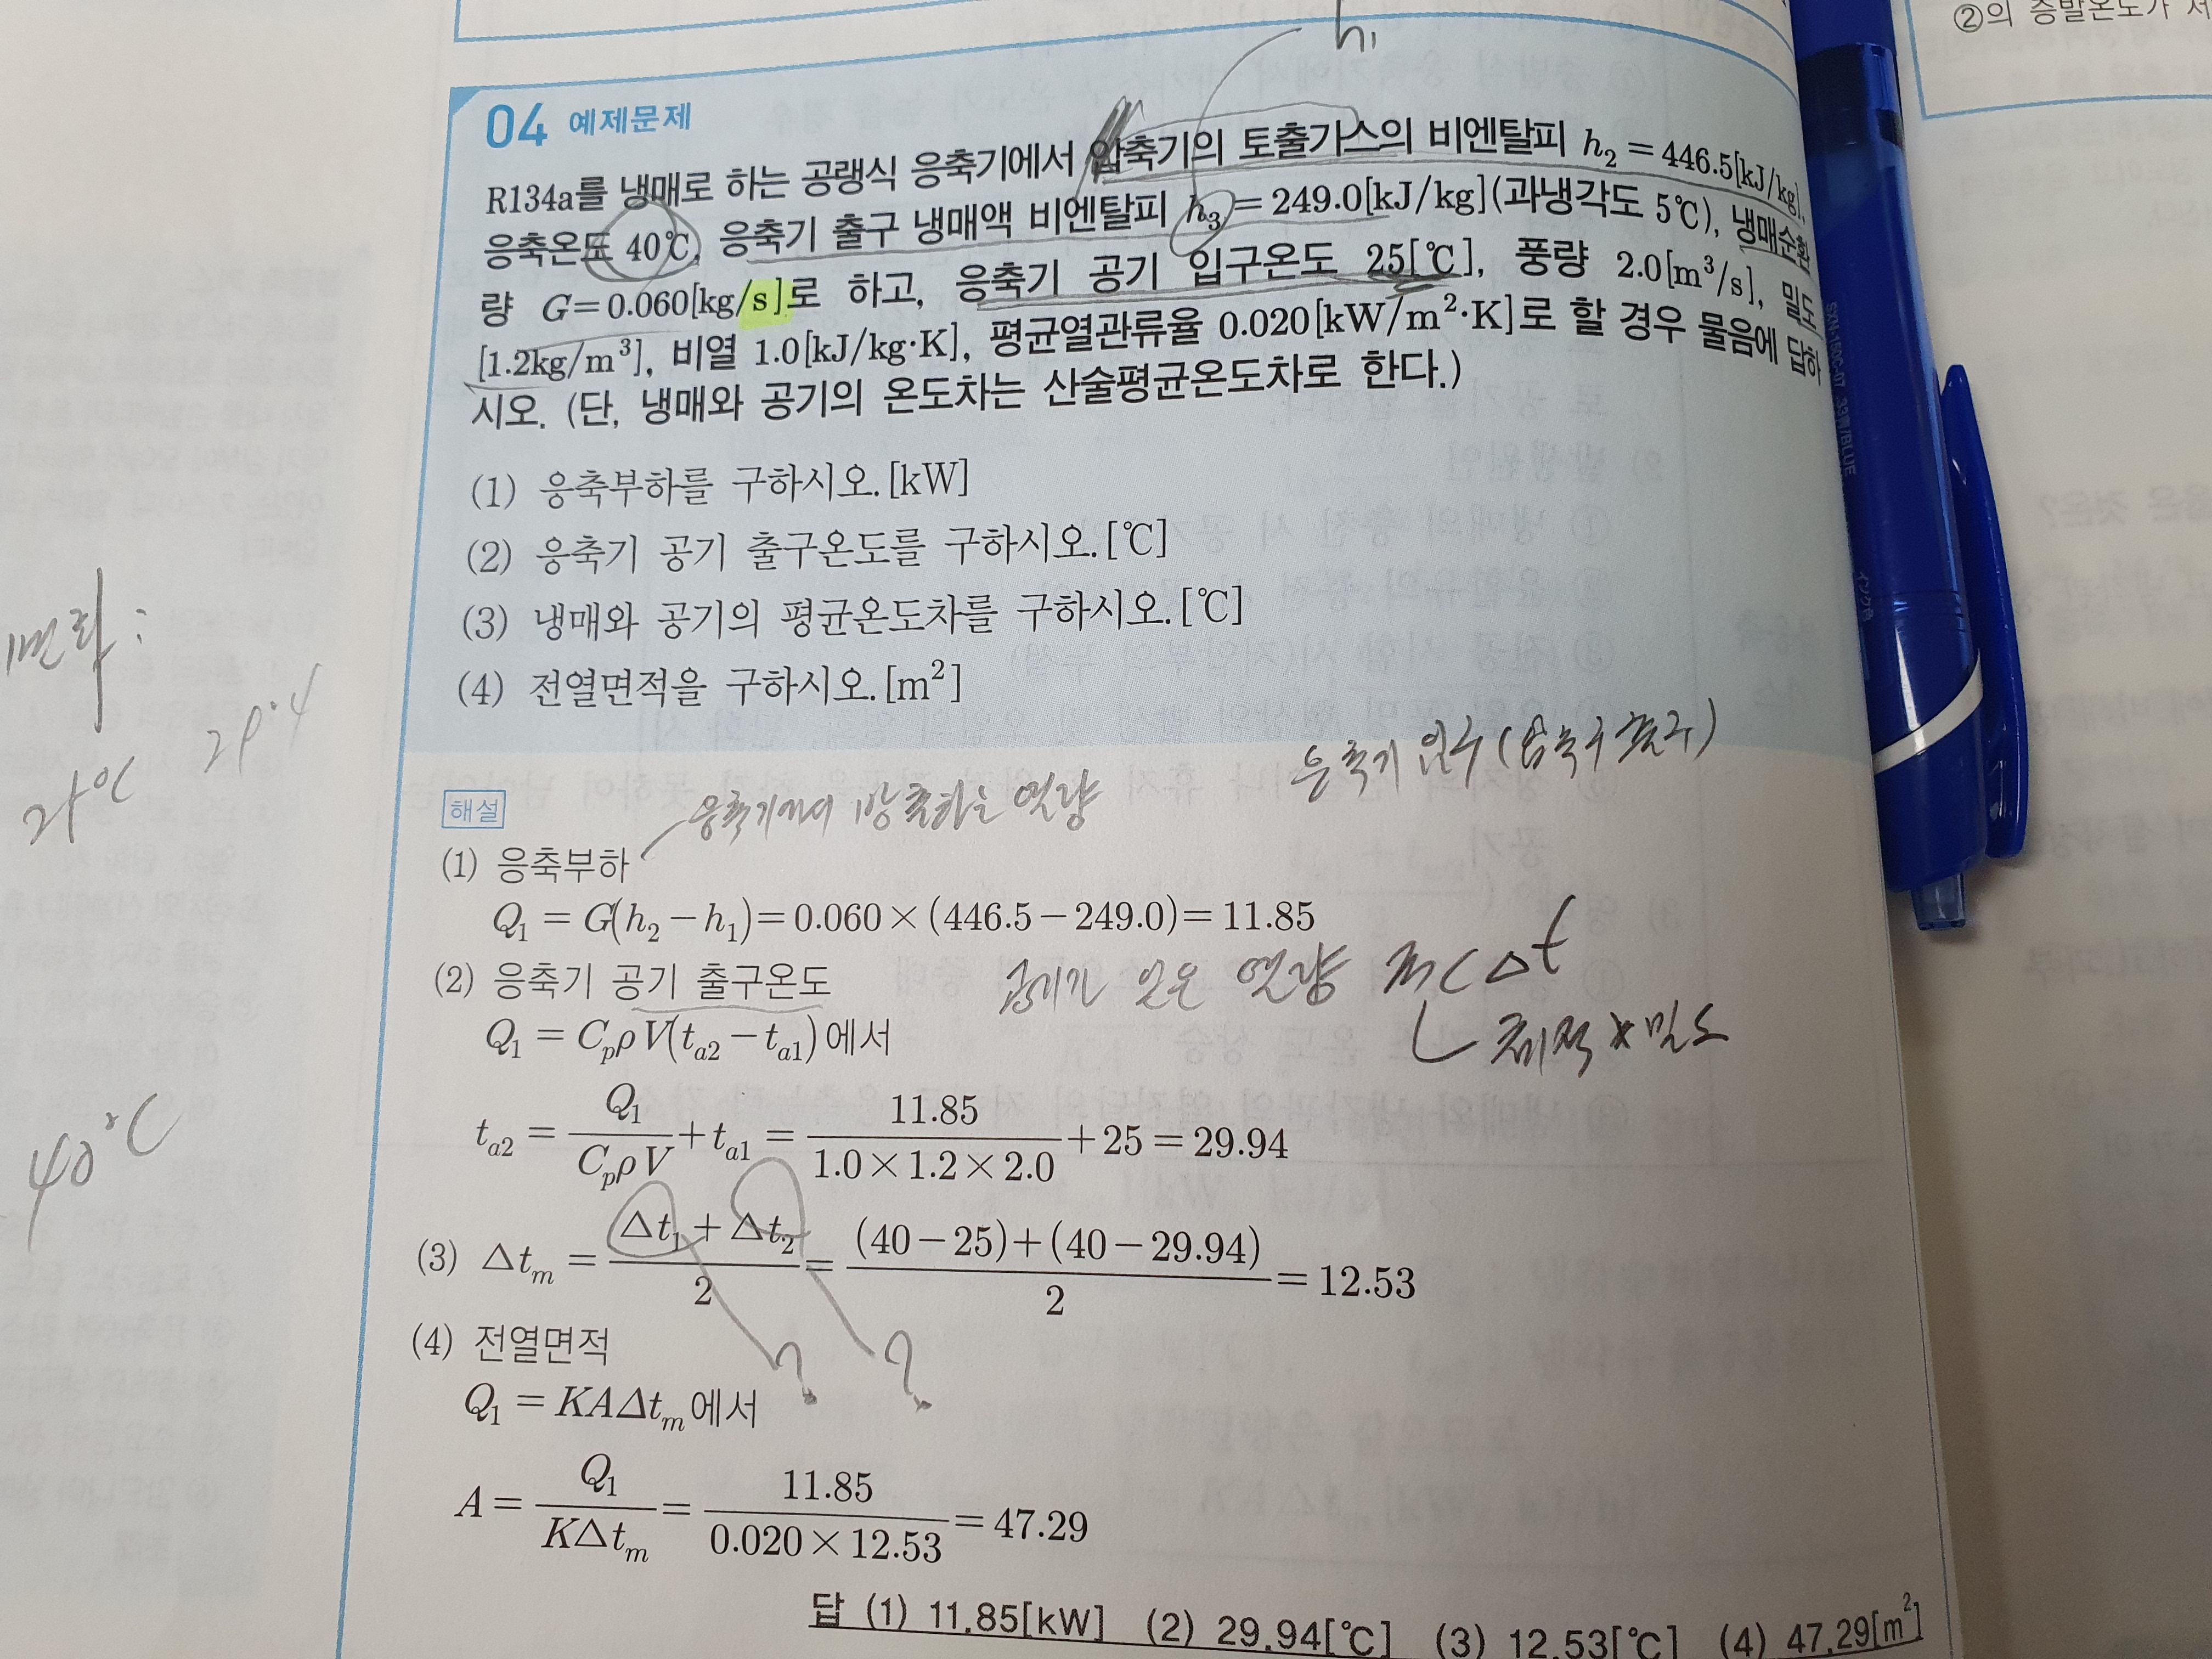 ②의 증발온도가 저
h₁
04 예제문제
R134a를 냉매로 하는 공랭식 응축기에서 압축기의 토출가스의 비엔탈피 h₂ = 446.5[kJ/kg],
응축온도 40℃, 응축기 출구 냉매액 비엔탈피 h₃ = 249.0[kJ/kg](과냉각도 5℃), 냉매순환
량 G = 0.060[kg/s]로 하고, 응축기 공기 입구온도 25[℃], 풍량 2.0[m³/s], 밀도
[1.2kg/m³], 비열 1.0[kJ/kg·K], 평균열관류율 0.020[kW/m²·K]로 할 경우 물음에 답하
시오. (단, 냉매와 공기의 온도차는 산술평균온도차로 한다.)
(1) 응축부하를 구하시오.[kW]
(2) 응축기 공기 출구온도를 구하시오.[℃]
(3) 냉매와 공기의 평균온도차를 구하시오.[℃]
(4) 전열면적을 구하시오.[m²]
응축기 입구(압축구 출구)
해설
응축기에서 방출하는 열량
(1) 응축부하
Q₁ = G(h₂ − h₁) = 0.060 × (446.5 − 249.0) = 11.85
(2) 응축기 공기 출구온도
공기가 얻은 열량 mc△t
체적×밀도
Q₁ = CₚρV(tₐ₂ − tₐ₁)에서
tₐ₂ = Q₁/CₚρV + tₐ₁ = 11.85/1.0 × 1.2 × 2.0 + 25 = 29.94
(3) △tₘ = △t₁ + △t₂/2 = (40 − 25) + (40 − 29.94)/2 = 12.53
? ?
(4) 전열면적
Q₁ = KA△tₘ에서
A = Q₁/K△tₘ = 11.85/0.020 × 12.53 = 47.29
답 (1) 11.85[kW] (2) 29.94[℃] (3) 12.53[℃] (4) 47.29[m²]
40℃